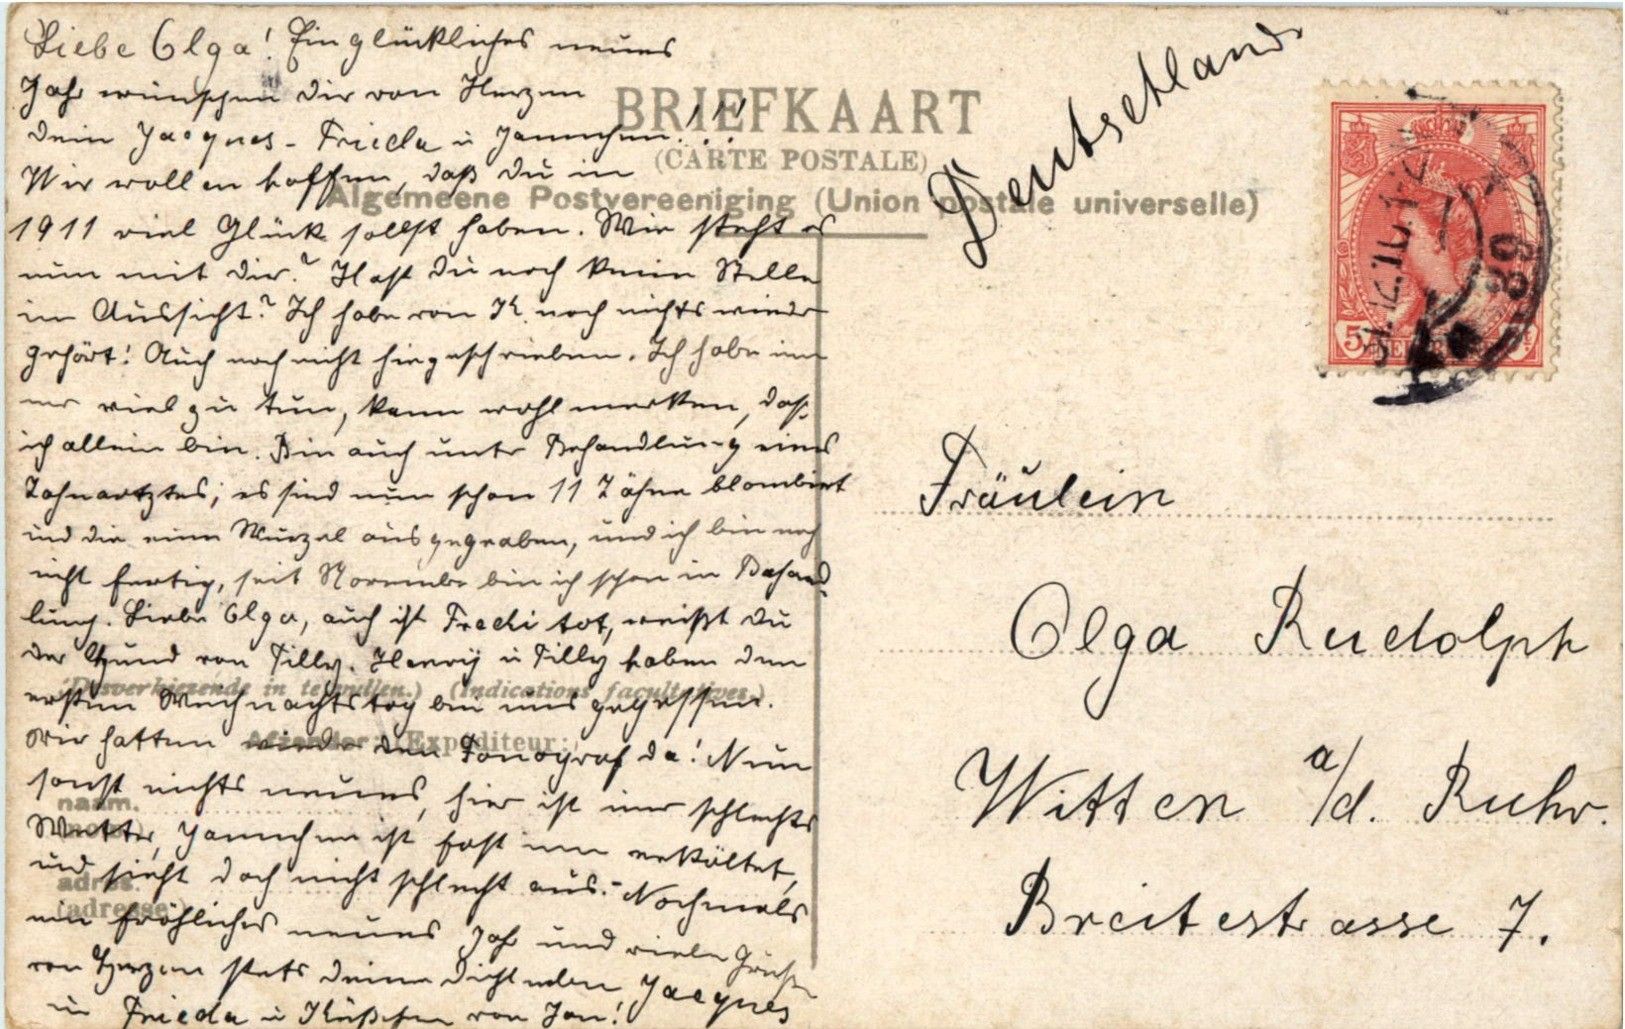 Liebe Olga! Ein glückliches neues
Jahr wünschen dir von Herzen
dein Jacques - Frieda u Jannchen!!!
Wir wollen hoffen, daß du in
1911 viel Glück sollst haben. Wie steht es
nun mit dir? Hast du noch keine Stelle
in Aussicht? Ich habe von K. noch nichts wieder
gehört! Auch noch nicht hingeschrieben. Ich habe im
mer viel zu tun, kann wohl merken, daß
ich allein bin. Bin auch unter Behandlung eines
Zahnarztes; es sind nun schon 11 Zähne blombirt
und die eine Wurzel ausgegraben, und ich bin noch
nicht fertig, seit November bin ich schon in Behand
lung. Liebe Olga, auch ist Fredi tot, weißt du
der Hund von Tilly. Henrij u Tilly haben den
ersten Weihnachtstag bei uns gegessen.
Wir hatten wieder den Fonograf da! Nun
sonst nichts neues, hier ist imer schlechts
Wetter, Jannchen ist fast imer erkältet,
und sieht doch nicht schlecht aus. - Nochmals
ein fröhliches neues Jahr und viele Grüße
von Herzen stets deine dich lieben Jacques
u Frieda u Küßchen von Jan!
BRIEFKAART
(CARTE POSTALE)
Algemeene Postvereeniging (Union postale universelle)
(Desverkiezende in te vullen.) (Indications facultatives.)
Afzender: (Expéditeur:)
naam.
(nom.)
adres.
(adresse.)
Deutschland
5
Fräulein
Olga Rudolph
Witten a/d. Ruhr.
Breitestrasse 7.